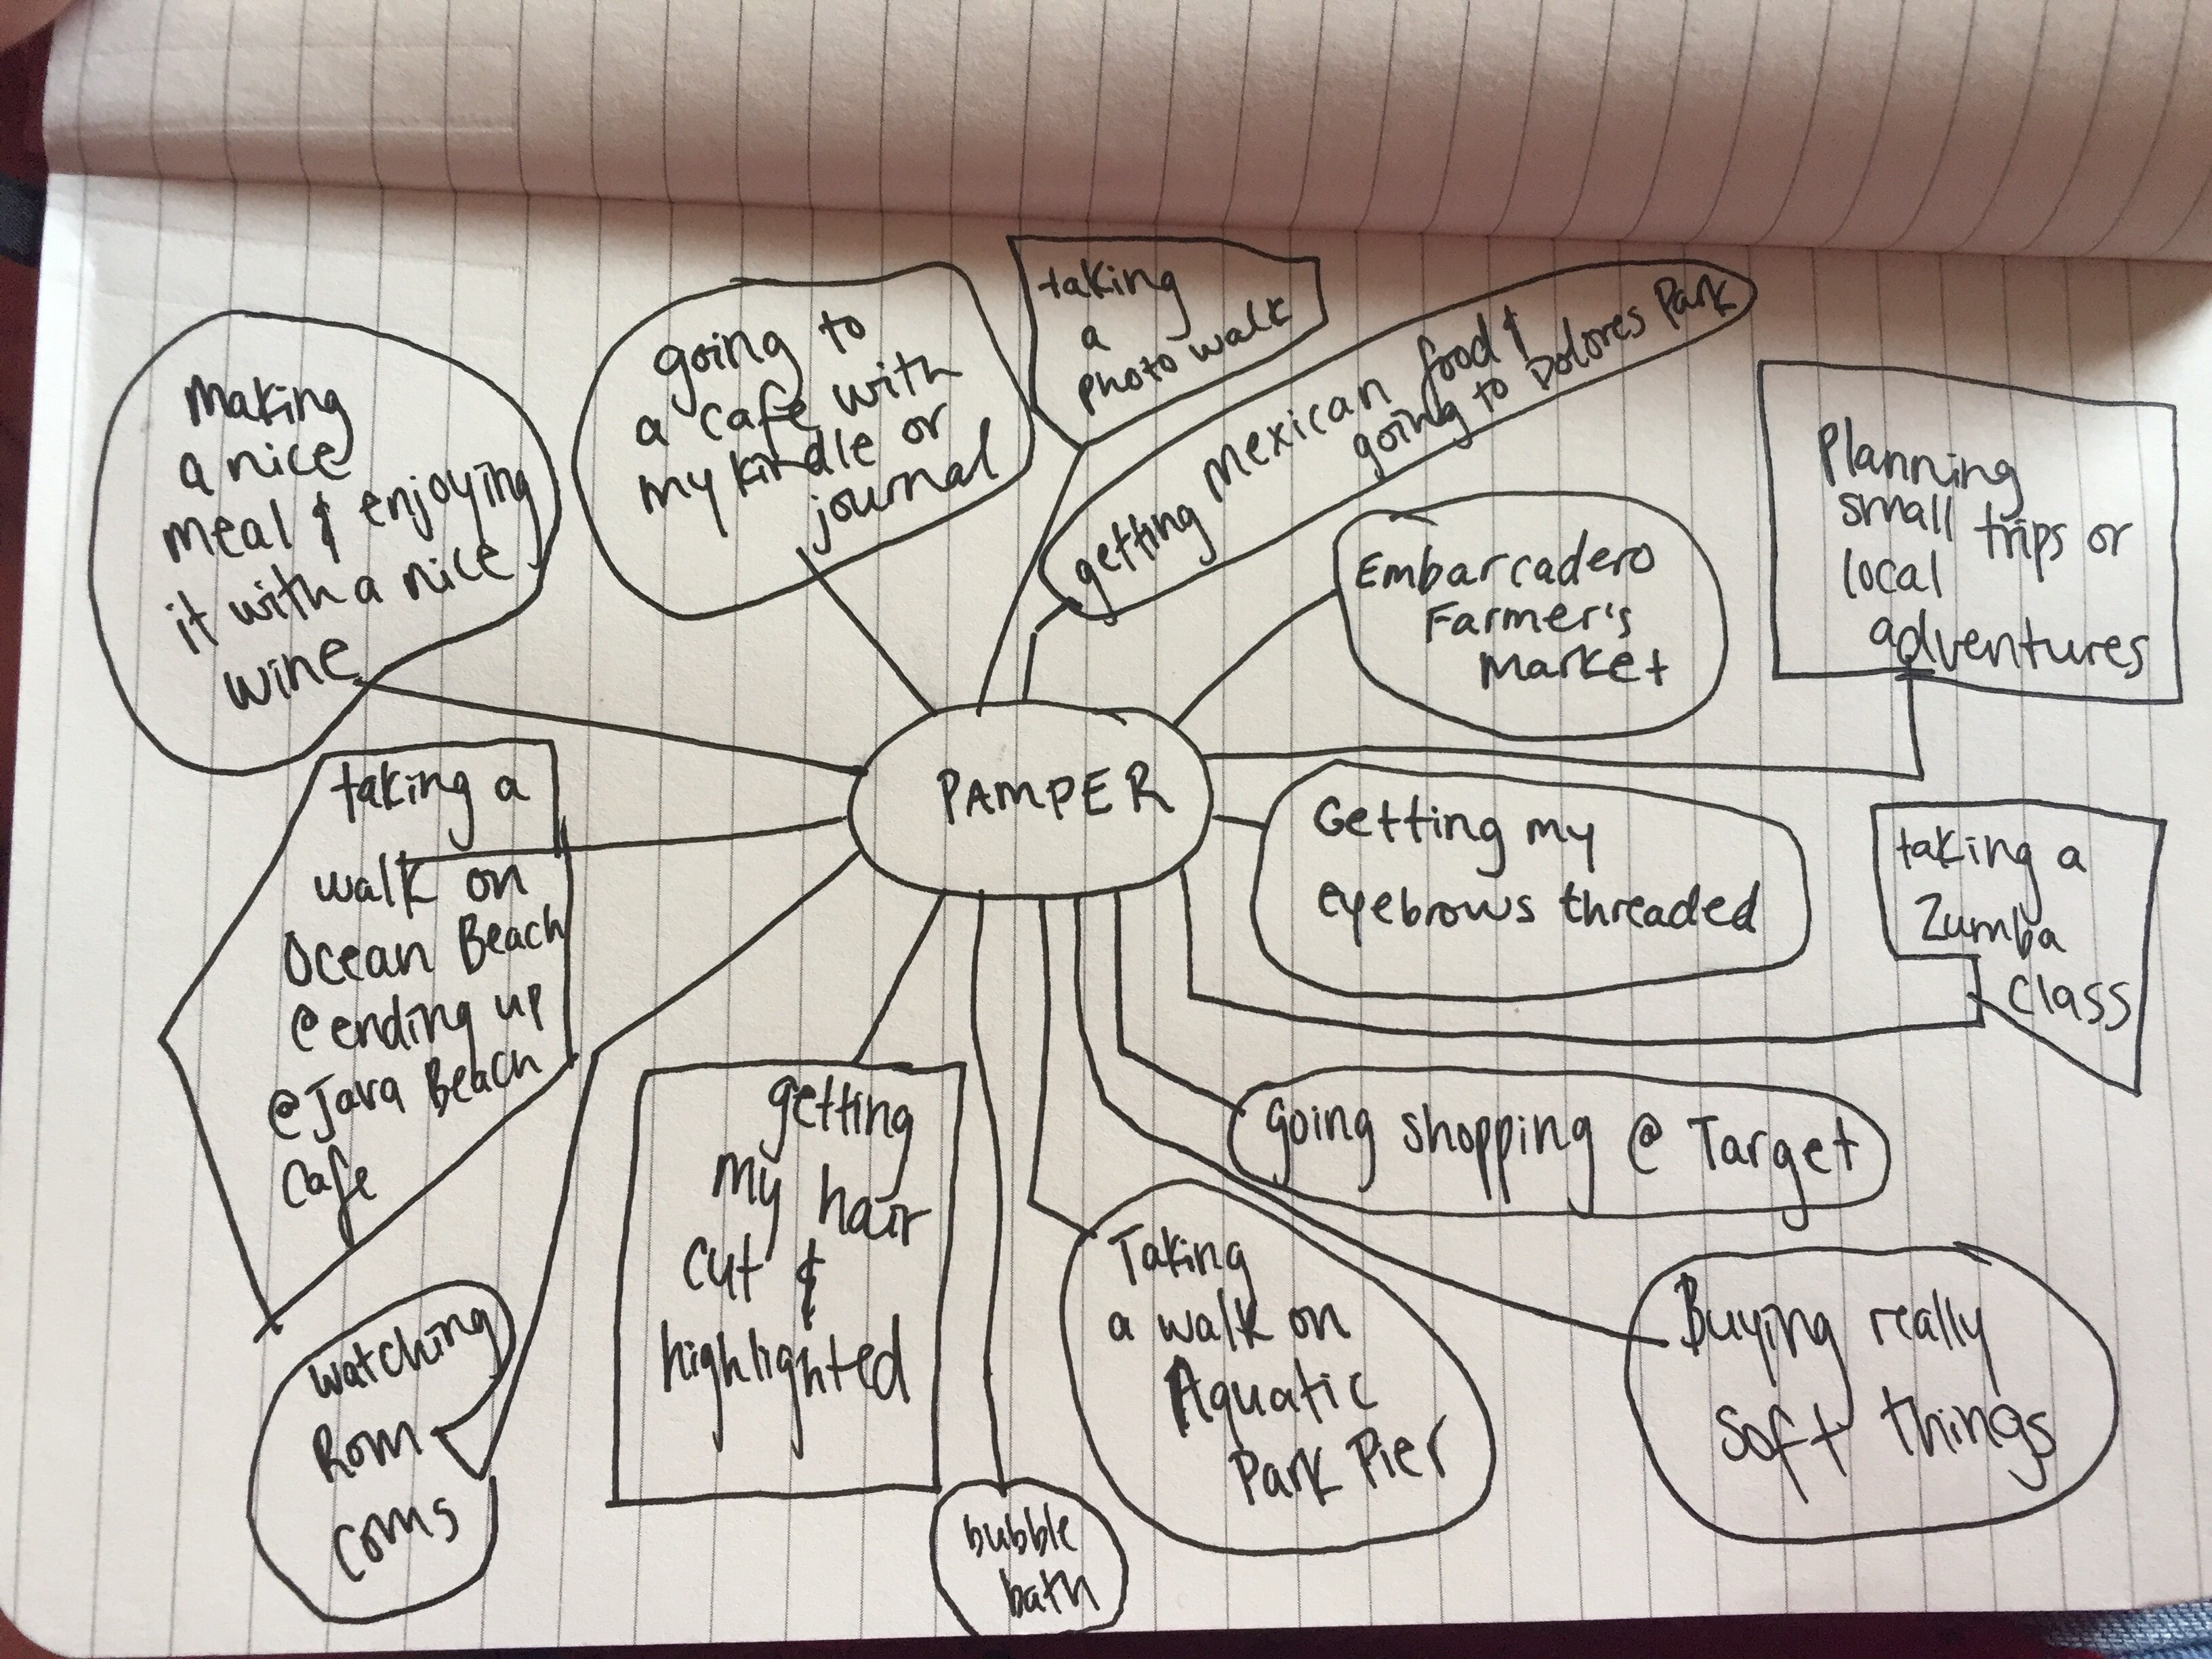 making
a nice
meal & enjoying
it with a nice
wine
going to
a cafe with
my kindle or
journal
taking
a
photo walk
getting mexican food &
going to Dolores Park
Embarcadero
Farmer's
market
Planning
small trips or
local
adventures
PAMPER
taking a
walk on
Ocean Beach
@ ending up
@ Java Beach
Cafe
Getting my
eyebrows threaded
taking a
Zumba
class
going shopping @ Target
getting
my hair
cut &
highlighted
Taking
a walk on
Aquatic
Park Pier
Buying really
soft things
watching
Rom
coms
bubble
bath